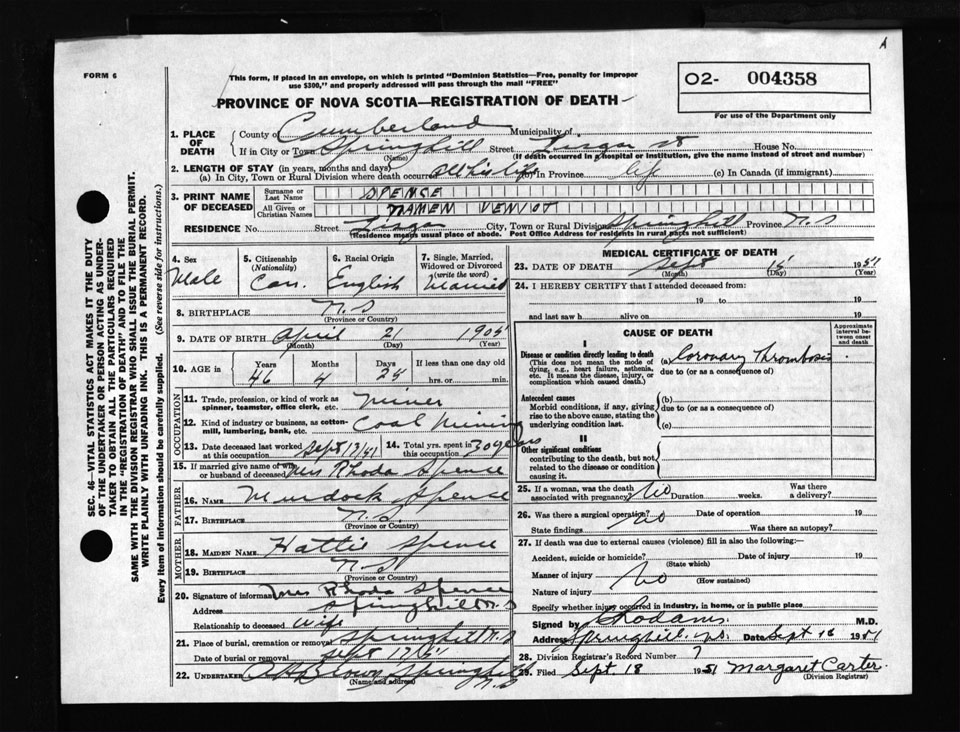 A
FORM 6
This form, if placed in an envelope, on which is printed "Dominion Statistics—Free, penalty for improper
use $300," and properly addressed will pass through the mail "FREE"
O2- 004358
For use of the Department only
PROVINCE OF NOVA SCOTIA—REGISTRATION OF DEATH
1. PLACE OF DEATH
County of Cumberland Municipality of
If in City or Town Springhill Street St House No.
(Name) (If death occurred in a hospital or institution, give the name instead of street and number)
2. LENGTH OF STAY (in years, months and days)
(a) In City, Town or Rural Division where death occurred all his life (b) in Province life (c) In Canada (if immigrant)
3. PRINT NAME OF DECEASED
Surname or Last Name SPENCE
All Given or Christian Names
RESIDENCE No. Street City, Town or Rural Division Springhill Province N.S
(Residence means usual place of abode. Post Office Address for residents in rural parts not sufficient)
4. Sex Male
5. Citizenship (Nationality) Can.
6. Racial Origin English
7. Single, Married, Widowed or Divorced (write the word) Married
8. BIRTHPLACE N.S
(Province or Country)
9. DATE OF BIRTH April 21 1905
(Month) (Day) (Year)
10. AGE in Years 46 Months 4 Days 24 If less than one day old hrs. or min.
OCCUPATION
11. Trade, profession, or kind of work as spinner, teamster, office clerk, etc. Miner
12. Kind of industry or business, as cotton-mill, lumbering, bank, etc. Coal Mining
13. Date deceased last worked at this occupation Sept 13/51
14. Total yrs. spent in this occupation 30 years
15. If married give name of wife or husband of deceased Mrs Rhoda Spence
FATHER
16. NAME Murdock Spence
17. BIRTHPLACE N.S.
(Province or Country)
MOTHER
18. MAIDEN NAME Hattie Spence
19. BIRTHPLACE N.S
(Province or Country)
20. Signature of informant Mrs Rhoda Spence
Address Springhill N.S
Relationship to deceased Wife
21. Place of burial, cremation or removal Springhill N.S
Date of burial or removal Sept 17/51
22. UNDERTAKER Brown Springhill N.S
(Name and address)
MEDICAL CERTIFICATE OF DEATH
23. DATE OF DEATH Sept 15 1951
(Month) (Day) (Year)
24. I HEREBY CERTIFY that I attended deceased from:
19 to 19
and last saw h alive on 19
CAUSE OF DEATH
Approximate interval between onset and death
I
Disease or condition directly leading to death (a) Coronary Thrombosis
(This does not mean the mode of dying, e.g., heart failure, asthenia, etc. It means the disease, injury, or complication which caused death.)
due to (or as a consequence of)
Antecedent causes
Morbid conditions, if any, giving rise to the above cause, stating the underlying condition last.
(b)
due to (or as a consequence of)
(c)
II
Other significant conditions
contributing to the death, but not related to the disease or condition causing it.
25. If a woman, was the death associated with pregnancy? No Duration weeks. Was there a delivery?
26. Was there a surgical operation? No Date of operation 19
State findings Was there an autopsy?
27. If death was due to external causes (violence) fill in also the following:—
Accident, suicide or homicide? Date of injury 19
(State which)
Manner of injury No
(How sustained)
Nature of injury
Specify whether injury occurred in industry, in home, or in public place
Signed by M.D.
Address Springhill, N.S. Date Sept 16 1951
28. Division Registrar's Record Number 7
29. Filed Sept. 18 1951 Margaret Carter.
(Division Registrar)
SEC. 46—VITAL STATISTICS ACT MAKES IT THE DUTY
OF THE UNDERTAKER OR PERSON ACTING AS UNDER-
TAKER TO OBTAIN ALL THE PARTICULARS REQUIRED
IN THE "REGISTRATION OF DEATH" AND TO FILE THE
SAME WITH THE DIVISION REGISTRAR WHO SHALL ISSUE THE BURIAL PERMIT.
WRITE PLAINLY WITH UNFADING INK. THIS IS A PERMANENT RECORD.
Every item of information should be carefully supplied. (See reverse side for instructions.)